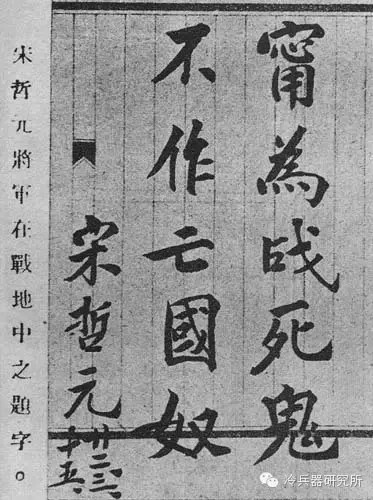 甯為战死鬼
不作亡國奴
宋哲元
廿二、三、
十五、
宋哲元將軍在戰地中之題字。
冷兵器研究所